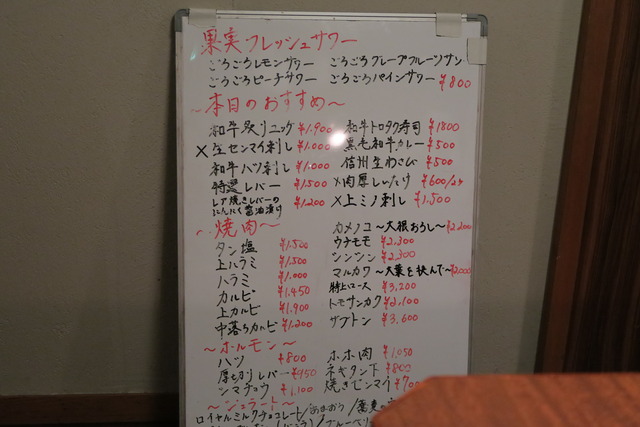 果実フレッシュサワー
ごろごろレモンサワー ごろごろグレープフルーツサワー
ごろごろピーチサワー ごろごろパインサワー ¥800
~本日のおすすめ~
和牛炙りユッケ ¥1,900 和牛トロタク寿司 ¥1800
×生センマイ刺し ¥1,000 黒毛和牛カレー ¥500
和牛ハツ刺し ¥1,000 信州生わさび ¥500
特選レバー ¥1,500 ×肉厚しいたけ ¥600/2ヶ
レア焼きレバーの
にんにく醤油漬け ¥1,200 ×上ミノ刺し ¥1,500
~焼肉~ カメノコ~大根おろし~¥2,200
タン塩 ¥1,500 ウチモモ ¥2,300
上ハラミ ¥1,500 シンシン ¥2,300
ハラミ ¥1,000 マルカワ~大葉を挟んで~¥2,000
カルビ ¥1,450 特上ロース ¥3,200
上カルビ ¥1,900 トモサンカク ¥2,100
中落ちカルビ ¥1,200 ザブトン ¥3,600
~ホルモン~
ハツ ¥800 ホホ肉 ¥1,050
厚切りレバー ¥950 ネギタンド ¥800
シマチョウ ¥1,100 焼きセンマイ ¥700
~ジェラート~
ロイヤルミルクチョコレート/